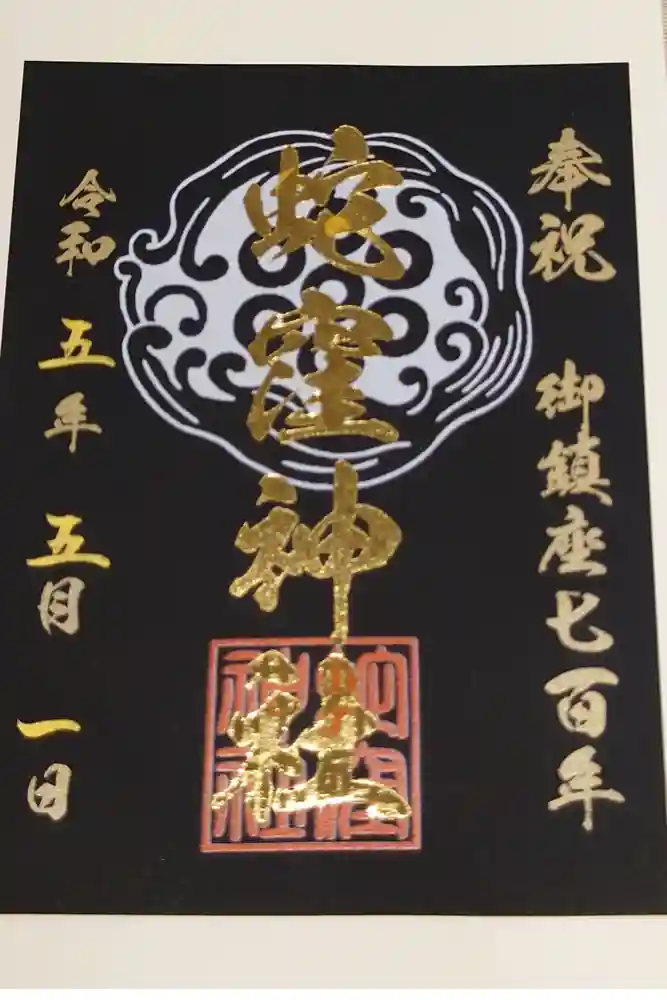 奉祝 御鎮座七百年
蛇窪神社
蛇窪神社
令和五年五月一日